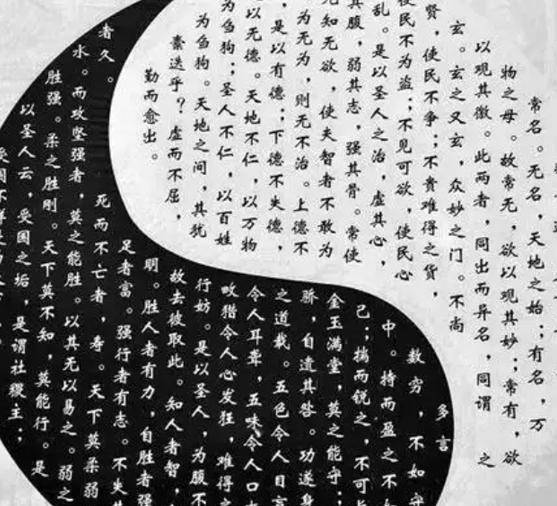 常名。无名，天地之始；有名，万
物之母。故常无，欲以观其妙；常有，欲
以观其徼。此两者，同出而异名，同谓之
玄。玄之又玄，众妙之门。不尚
贤，使民不争；不贵难得之货，
使民不为盗；不见可欲，使民心
乱。是以圣人之治，虚其心，
其腹，弱其志，强其骨。常使
无知无欲，使夫智者不敢为
为无为，则无不治。上德不
是以有德；下德不失德，
以无德。天地不仁，以万物
为刍狗；圣人不仁，以百姓
为刍狗。天地之间，其犹
素迭乎？虚而不屈，
勤而愈出。
多言
数穷，不如守
中。持而盈之不
己；揣而锐之，不可长
金玉满堂，莫之能守；
骄，自遗其咎。功遂身
之道载。五色令人目盲
令人耳聋，五味令人口
畋猎令人心发狂，难得之
行妨。是以圣人，为腹不
故去彼取此。知人者智，
明。胜人者有力，自胜者强
足者富。强行者有志。不失其
者久。
死而不亡者，寿。天下莫柔弱
水。而攻坚强者，莫之能胜。以其无以易之。弱之
胜强。柔之胜刚。天下莫不知，莫能行。是
以圣人云，受国之垢，是谓社稷主；
受国不祥